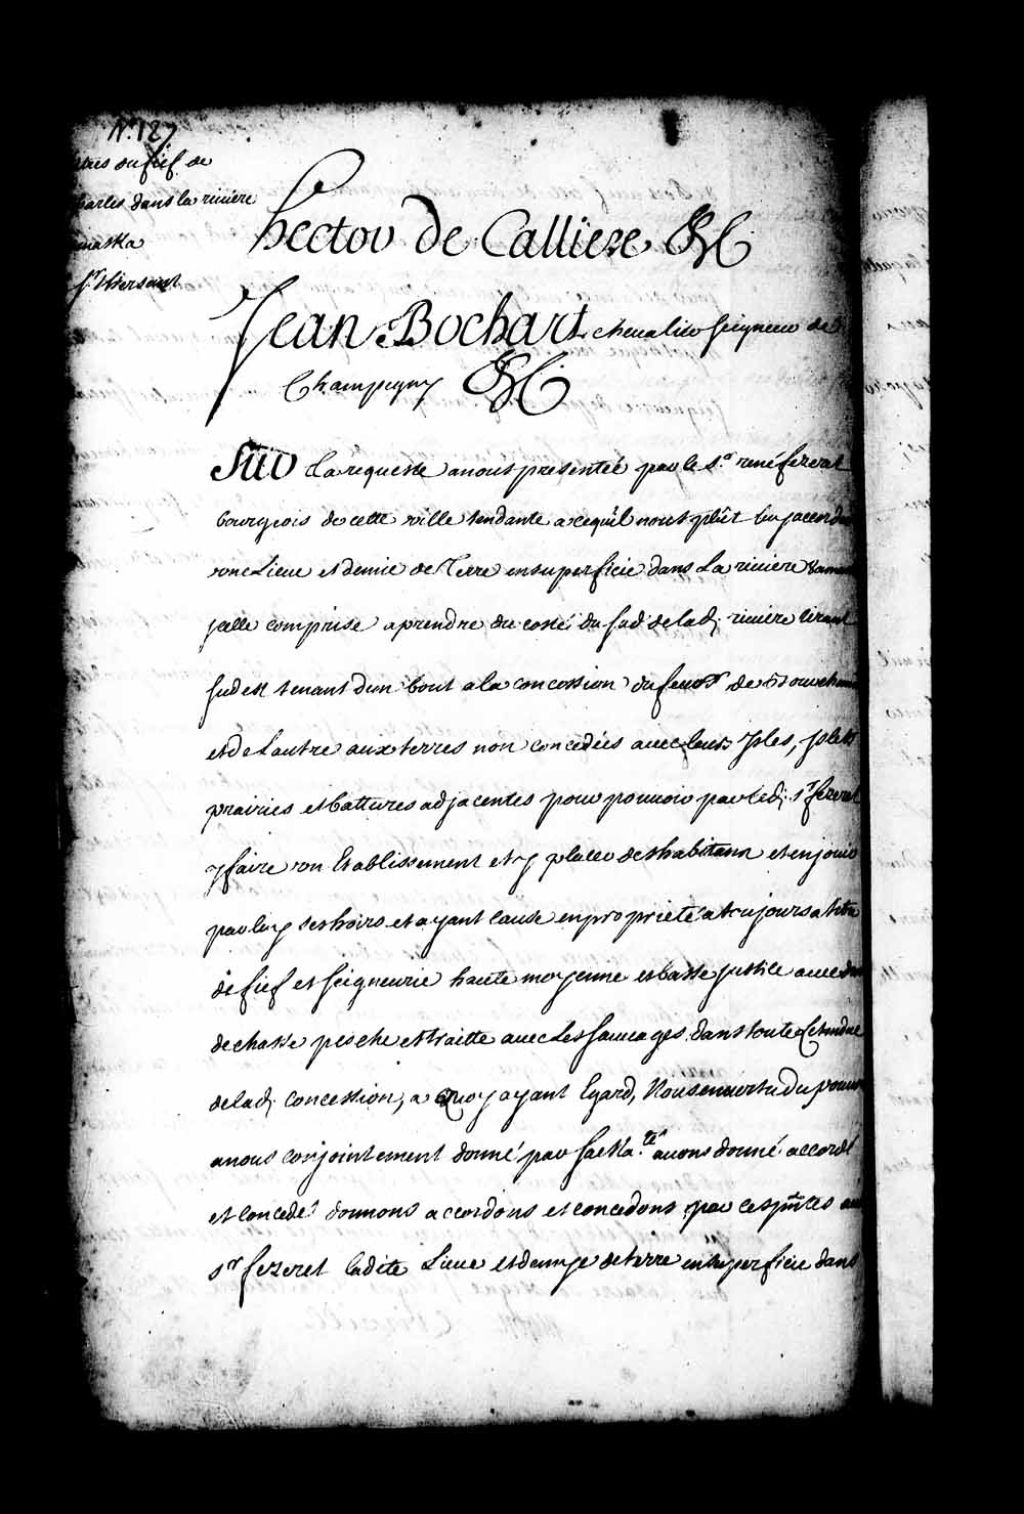 N.° 127
du fief de
dans la riuiere
maska
hector de Calliere &c
Jean Bochart cheualier seigneur de
Champigny &c
Sur La requeste anous presentée par le s.r rené fezeret
bourgeois de cette ville tendante acequ'il nous plût luy accorder
une Lieue et demie de Terre en superficie dans La riuiere
jcelle comprise a prendre du costé du sud de lad. riuiere tirant
sudest tenant d'un bout a la concession du feu s.r de
et de Lautre aux terres non concedées auec leurs Jsles, jslets
prairies et battures adjacentes pour pouuoir par led. s.r fezeret
y faire un Establissement et y placer des habitans et en jouir
par luy ses hoirs et ayant cause en proprieté a toujours a titre
de fief et seigneurie haute moyenne et basse justice auec
de chasse pesche et traitte auec Les sauuages dans toute Letendue
de lad. concession, a Quoy ayant Egard, Nous en vertu du pouuoir
a nous conjointement donné par sa Ma.té auons donné accordé
et concedé donnons accordons et concedons par ces pñtes au
s.r fezeret ladite Lieue et demye de terre en superficie dans